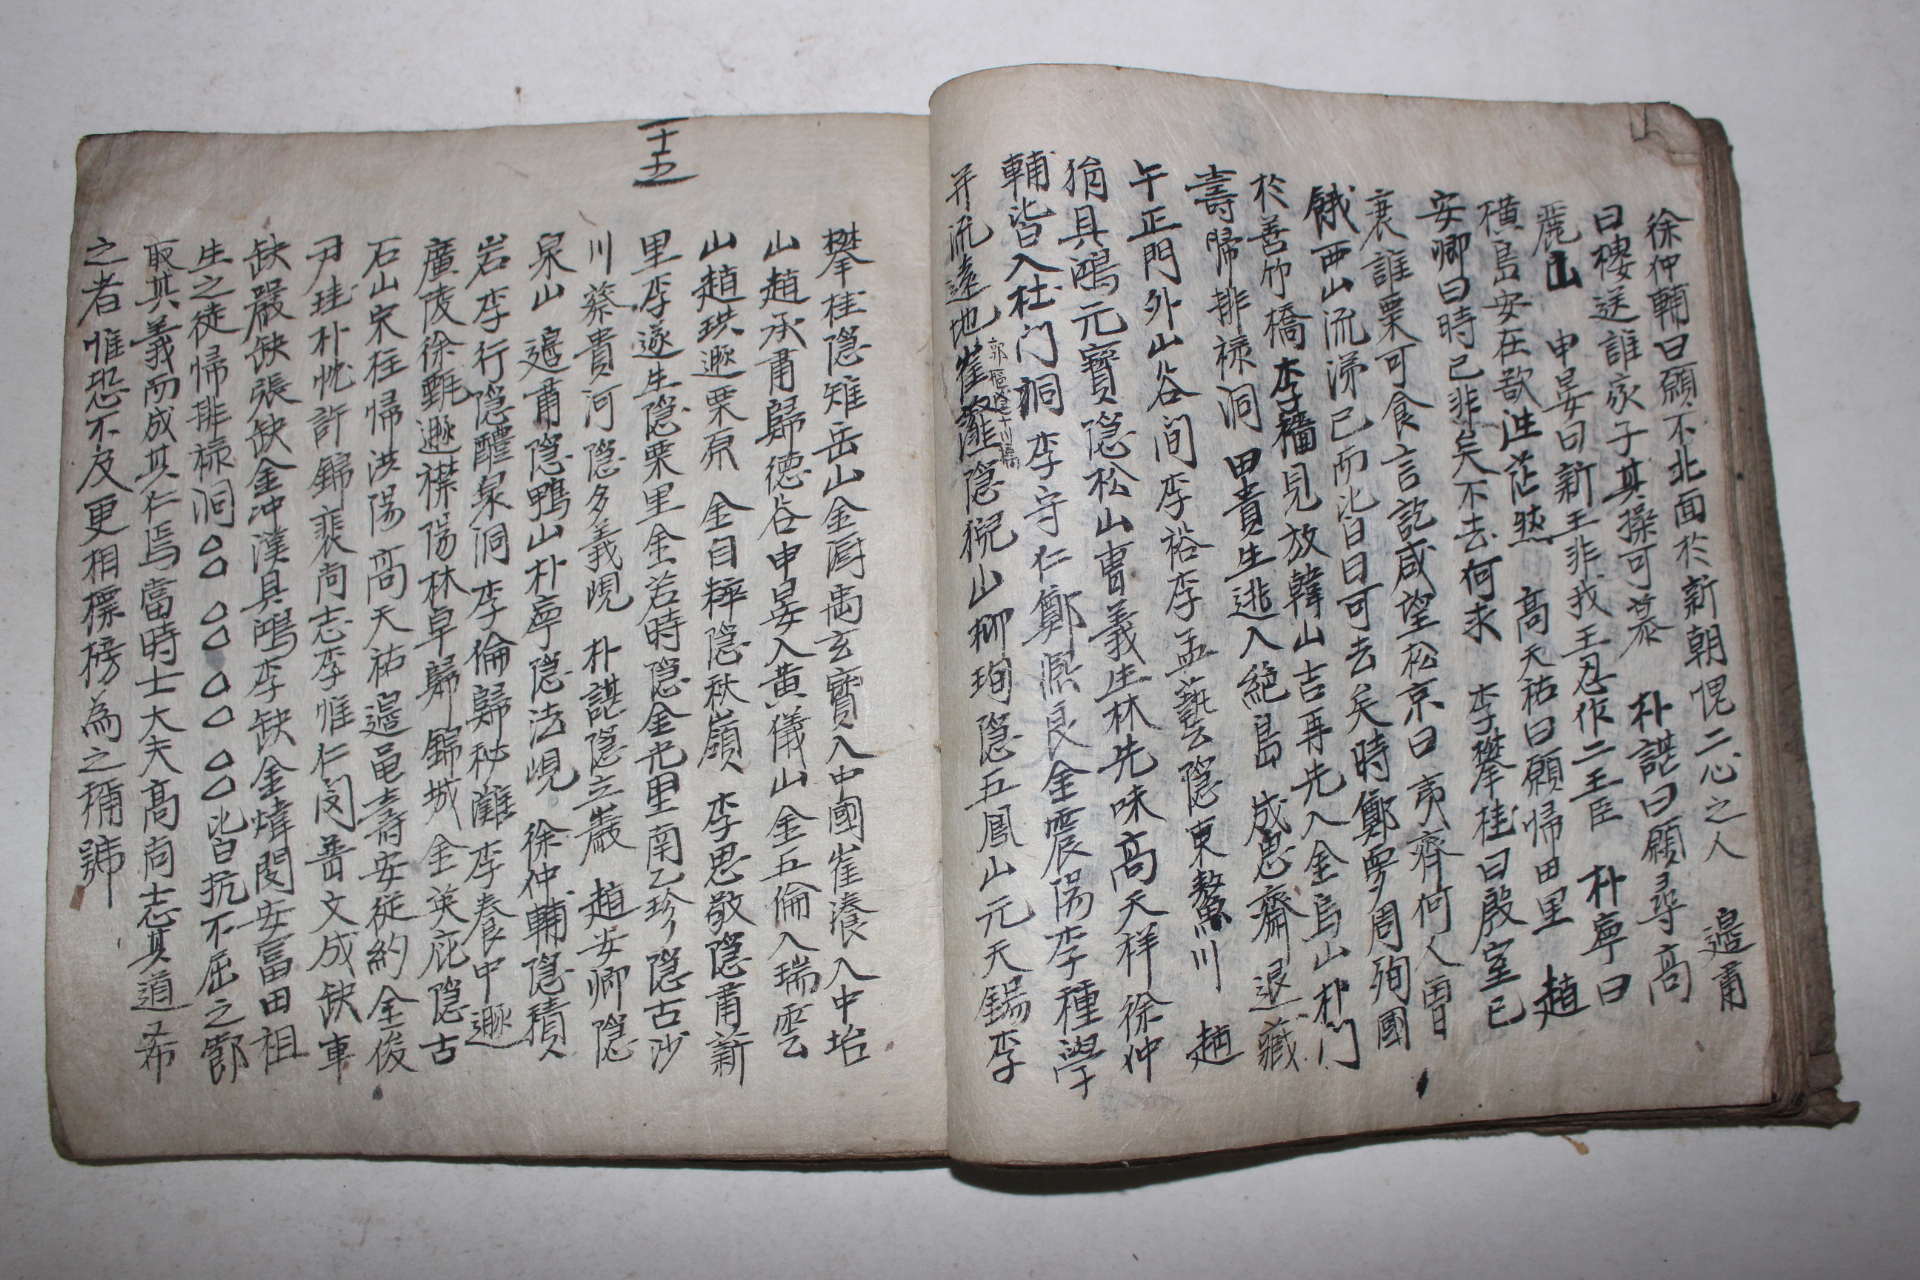 徐仲輔曰願不北面於新朝愧二心之人 邉肅
曰棲送誰家子其操可慕 朴諶曰願尋高
麗山 申晏曰新王非我王忍作二王臣 朴寧曰
横島安在欲逃茫然 高天祐曰願帰田里 趙
安卿曰時已非矣不去何求 李攀桂曰殷室已
衰誰粟可食言訖咸望松京曰夷齊何人曽
餓西山流涕已而皆曰可去矣時鄭夢周殉國
於善竹橋李穡見放韓山吉再先入金烏山朴门
壽帰排禄洞田貴生逃入絶島 成思齋退藏
午正門外山谷间李裕李孟藝隠東鰲川 趙
狷具鴻元寳隠松山曺義生林先味高天祥徐仲
輔皆入杜门洞李守仁鄭熙良金震陽李種學
并流遠地崔瀣隠猊山柳珣隠五鳳山元天錫李
二十五
攀桂隠雉岳山金
山趙承肅歸徳谷申晏入黄儀山金五倫入瑞雲
山趙珙遯栗原 金自粹隠秋嶺 李思敬隠肅新
里李遂生隠栗里金若時隠金光里南乙珍隠古沙
川蔡貴河隠多義峴 朴諶隠立巖 趙安卿隠
泉山 邉肅隠鴨山朴寧隠法峴 徐仲輔隠積
岩李行隠醴泉洞李倫歸秘灘李養中遯
廣陵徐甄遯襟陽林卓歸錦城金英庇隠古
石山宋桂帰洪陽高天祐邉黽壽安従約金俊
尹珪朴忱許錦裵尚志李惟仁闵普文成缺車
缺嚴缺張缺金冲漢具鴻李缺金煒闵安富田祖
生之徒帰排禄洞△△ △△△△ △△皆抗不屈之節
取其義而成其仁焉當時士大夫高尚志其道又希
之者惟恐不及更相標榜為之稱號